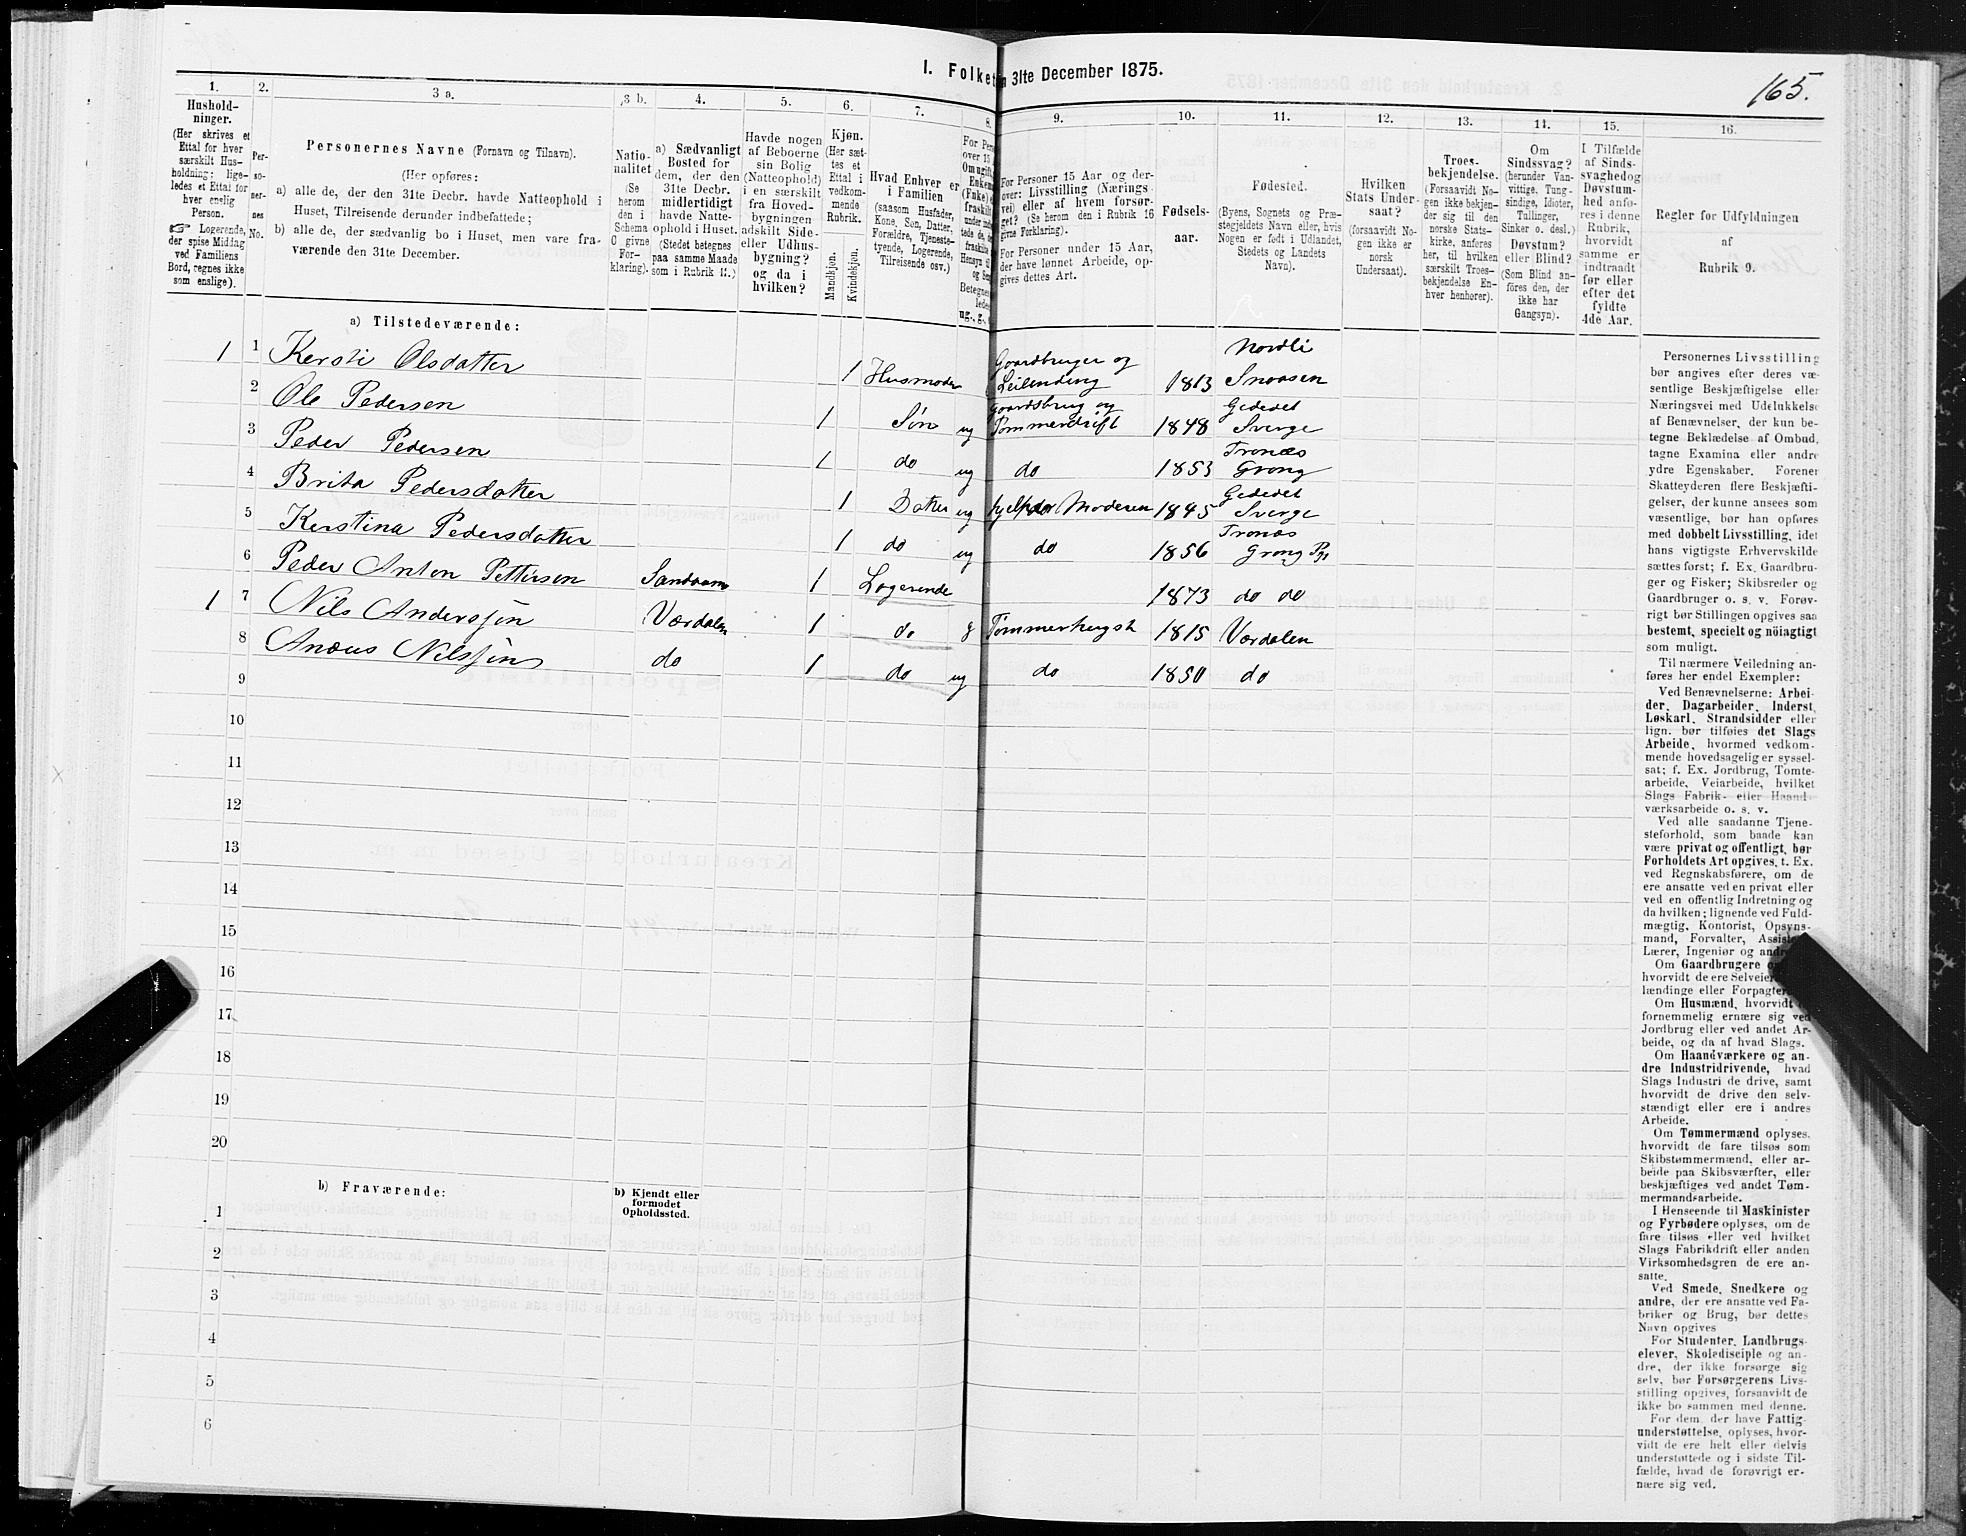 I. Folket
n 31te December 1875.
165.
1.
Hushold-
ninger.
(Her skrives et
Ettal for hver
særskilt Hus-
holdning; lige-
ledes et Ettal for
hver enslig
Person.
Logerende,
der spise Middag
ved Familiens
Bord, regnes ikke
som enslige).
2.
Per-
so-
ner-
nes
No.
3 a.
Personernes Navne (Fornavn og Tilnavn).
(Her opføres:
a) alle de, der den 31te Decbr. havde Natteophold i
Huset, Tilreisende derunder indbefattede;
b) alle de, der sædvanlig bo i Huset, men vare fra-
værende den 31te December.
3 b.
Natio-
nalitet
(Se
herom
den i
Schema
O givne
For-
klaring).
4.
a) Sædvanligt
Bosted for
dem, der den
31te Decbr.
midlertidigt
havde Natte-
ophold i Huset.
(Stedet betegnes
paa samme Maade
som i Rubrik 11.)
5.
Havde nogen
af Beboerne
sin Bolig
(Natteophold)
i en særskilt
fra Hoved-
bygningen
adskilt Side-
eller Udhus-
bygning?
og da i
hvilken?
6.
Kjøn.
(Her sæt-
tes et
Ettal i
vedkom-
mende
Rubrik.
Mandkjøn.
Kvindekjøn.
7.
Hvad Enhver er
i Familien
(saasom Husfader,
Kone, Søn, Datter,
Forældre, Tjeneste-
tyende, Logerende,
Tilreisende osv.)
8.
For Pers
over 15
Om ugift,
Enkem
(Enke)
fraskilt
9.
For Personer 15 Aar og der-
over: Livsstilling (Nærings-
vei) eller af hvem forsør-
get? (Se herom den i Rubrik 16
givne Forklaring).
For Personer under 15 Aar,
der have lønnet Arbeide, op-
gives dettes Art.
10.
Fødsels-
aar.
11.
Fødested.
(Byens, Sognets og Præ-
stegjeldets Navn eller, hvis
Nogen er født i Udlandet,
Stedets og Landets
Navn).
12.
Hvilken
Stats Under-
saat?
(forsaavidt No-
gen ikke er
norsk
Undersaat).
13.
Troes-
bekjendelse.
(Forsaavidt No-
gen ikke bekjen-
der sig til den
norske Stats-
kirke, anføres
her, til hvilken
særskilt Troes-
bekjendelse En-
hver henhører).
14.
Om
Sindssvag?
(herunder Van-
vittige, Tung-
sindige, Idioter,
Tullinger,
Sinker o. desl.)
Døvstum?
eller Blind?
(Som Blind an-
føres den, der
ikke har
Gangsyn).
15.
I Tilfælde
af Sinds-
svaghed og
Døvstum-
hed anfø-
res i denne
Rubrik,
hvorvidt
samme er
indtraadt
før eller
efter det
fyldte
4de Aar.
16.
Regler for Udfyldningen
af
Rubrik 9.
a) Tilstedeværende:
1 1 Kersti Olsdatter 1 Husmoder Gaardbruger og Leilending 1813 Nordli Snaasen
2 Ole Pedersen 1 Søn ug Gaardsbrug og Tømmerdrift 1848 Gededet Sverge
3 Peder Pedersen 1 do ug do 1853 Tronæs Grong
4 Brita Pedersdatter 1 Datter ug hjelper Moderen 1845 Gededet Sverge
5 Kerstina Pedersdatter 1 do ug do 1856 Tronæs Grong
6 Peder Anton Pettersen 1 Logerende 1873 do do
1 7 Nils Andersjøn Værdalen 1 do g Tømmerhugst 1815 Værdalen
8 Anæus Nilsjøn do 1 do ug do 1850 do
9
10
11
12
13
14
15
16
17
18
19
20
b) Fraværende:
b) Kjendt eller
formodet
Opholdssted.
1
2
3
4
5
6
Personernes Livsstilling
bør angives efter deres væ-
sentlige Beskjæftigelse eller
Næringsvei med Udelukkelse
af Benævnelser, der kun be-
tegne Beklædelse af Ombud,
tagne Examina eller andre
ydre Egenskaber. Forener
Skatteyderen flere Beskjæfti-
gelser, der kunne ansees som
væsentlige, bør han opføres
med dobbelt Livsstilling, idet
hans vigtigste Erhvervskilde
sættes først; f. Ex. Gaardbru-
ger og Fisker; Skibsreder og
Gaardbruger o. s. v. Forøv-
rigt bør Stillingen opgives saa
bestemt, specielt og nöiagtigt
som muligt.
Til nærmere Veiledning an-
føres her endel Exempler:
Ved Benævnelserne: Arbei-
der, Dagarbeider, Inderst,
Løskarl, Strandsidder eller
lign. bør tilføies det Slags
Arbeide, hvormed vedkom-
mende hovedsagelig er syssel-
sat; f. Ex. Jordbrug, Tomte-
arbeide, Veiarbeide, hvilket
Slags Fabrik- eller Haand-
værksarbeide o. s. v.
Ved alle saadanne Tjene-
steforhold, som baade kan
være privat og offentligt, bør
Forholdets Art opgives, t. Ex.
ved Regnskabsførere, om de
ere ansatte ved en privat eller
ved en offentlig Indretning og
da hvilken; lignende ved Fuld-
mægtig, Kontorist, Opsyns-
mand, Forvalter, Assistent,
Lærer, Ingeniør og andre.
Om Gaardbrugere
hvorvidt de ere Selveiere
lændinge eller Forpagtere
Om Husmænd, hvorvidt
fornemmelig ernære sig ved
Jordbrug eller ved andet Ar-
beide, og da af hvad Slags.
Om Haandværkere og an-
dre Industridrivende, hvad
Slags Industri de drive, samt
hvorvidt de drive den selv-
stændigt eller ere i andres
Arbeide.
Om Tømmermænd oplyses,
hvorvidt de fare tilsøs som
Skibstømmermænd, eller ar-
beide paa Skibsværfter, eller
beskjæftiges ved andet Tøm-
mermandsarbeide.
I Henseende til Maskinister
og Fyrbødere oplyses, om de
fare tilsøs eller ved hvilket
Slags Fabrikdrift eller anden
Virksomhedsgren de ere an-
satte.
Ved Smede, Snedkere og
andre, der ere ansatte ved Fa-
briker og Brug, bør dettes
Navn opgives
For Studenter, Landbrugs-
elever, Skoledisciple og an-
dre, der ikke forsørge sig
selv, bør Forsørgerens Livs-
stilling opgives, forsaavidt de
ikke bo sammen med denne.
For dem, der have Fattig-
understøttelse, oplyses, hvor-
vidt de ere helt eller delvis
understøttede og i sidste Til-
fælde, hvad de forøvrigt er-
nære sig ved.